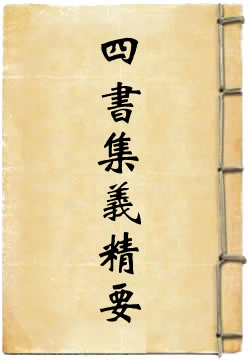 四書集義精要